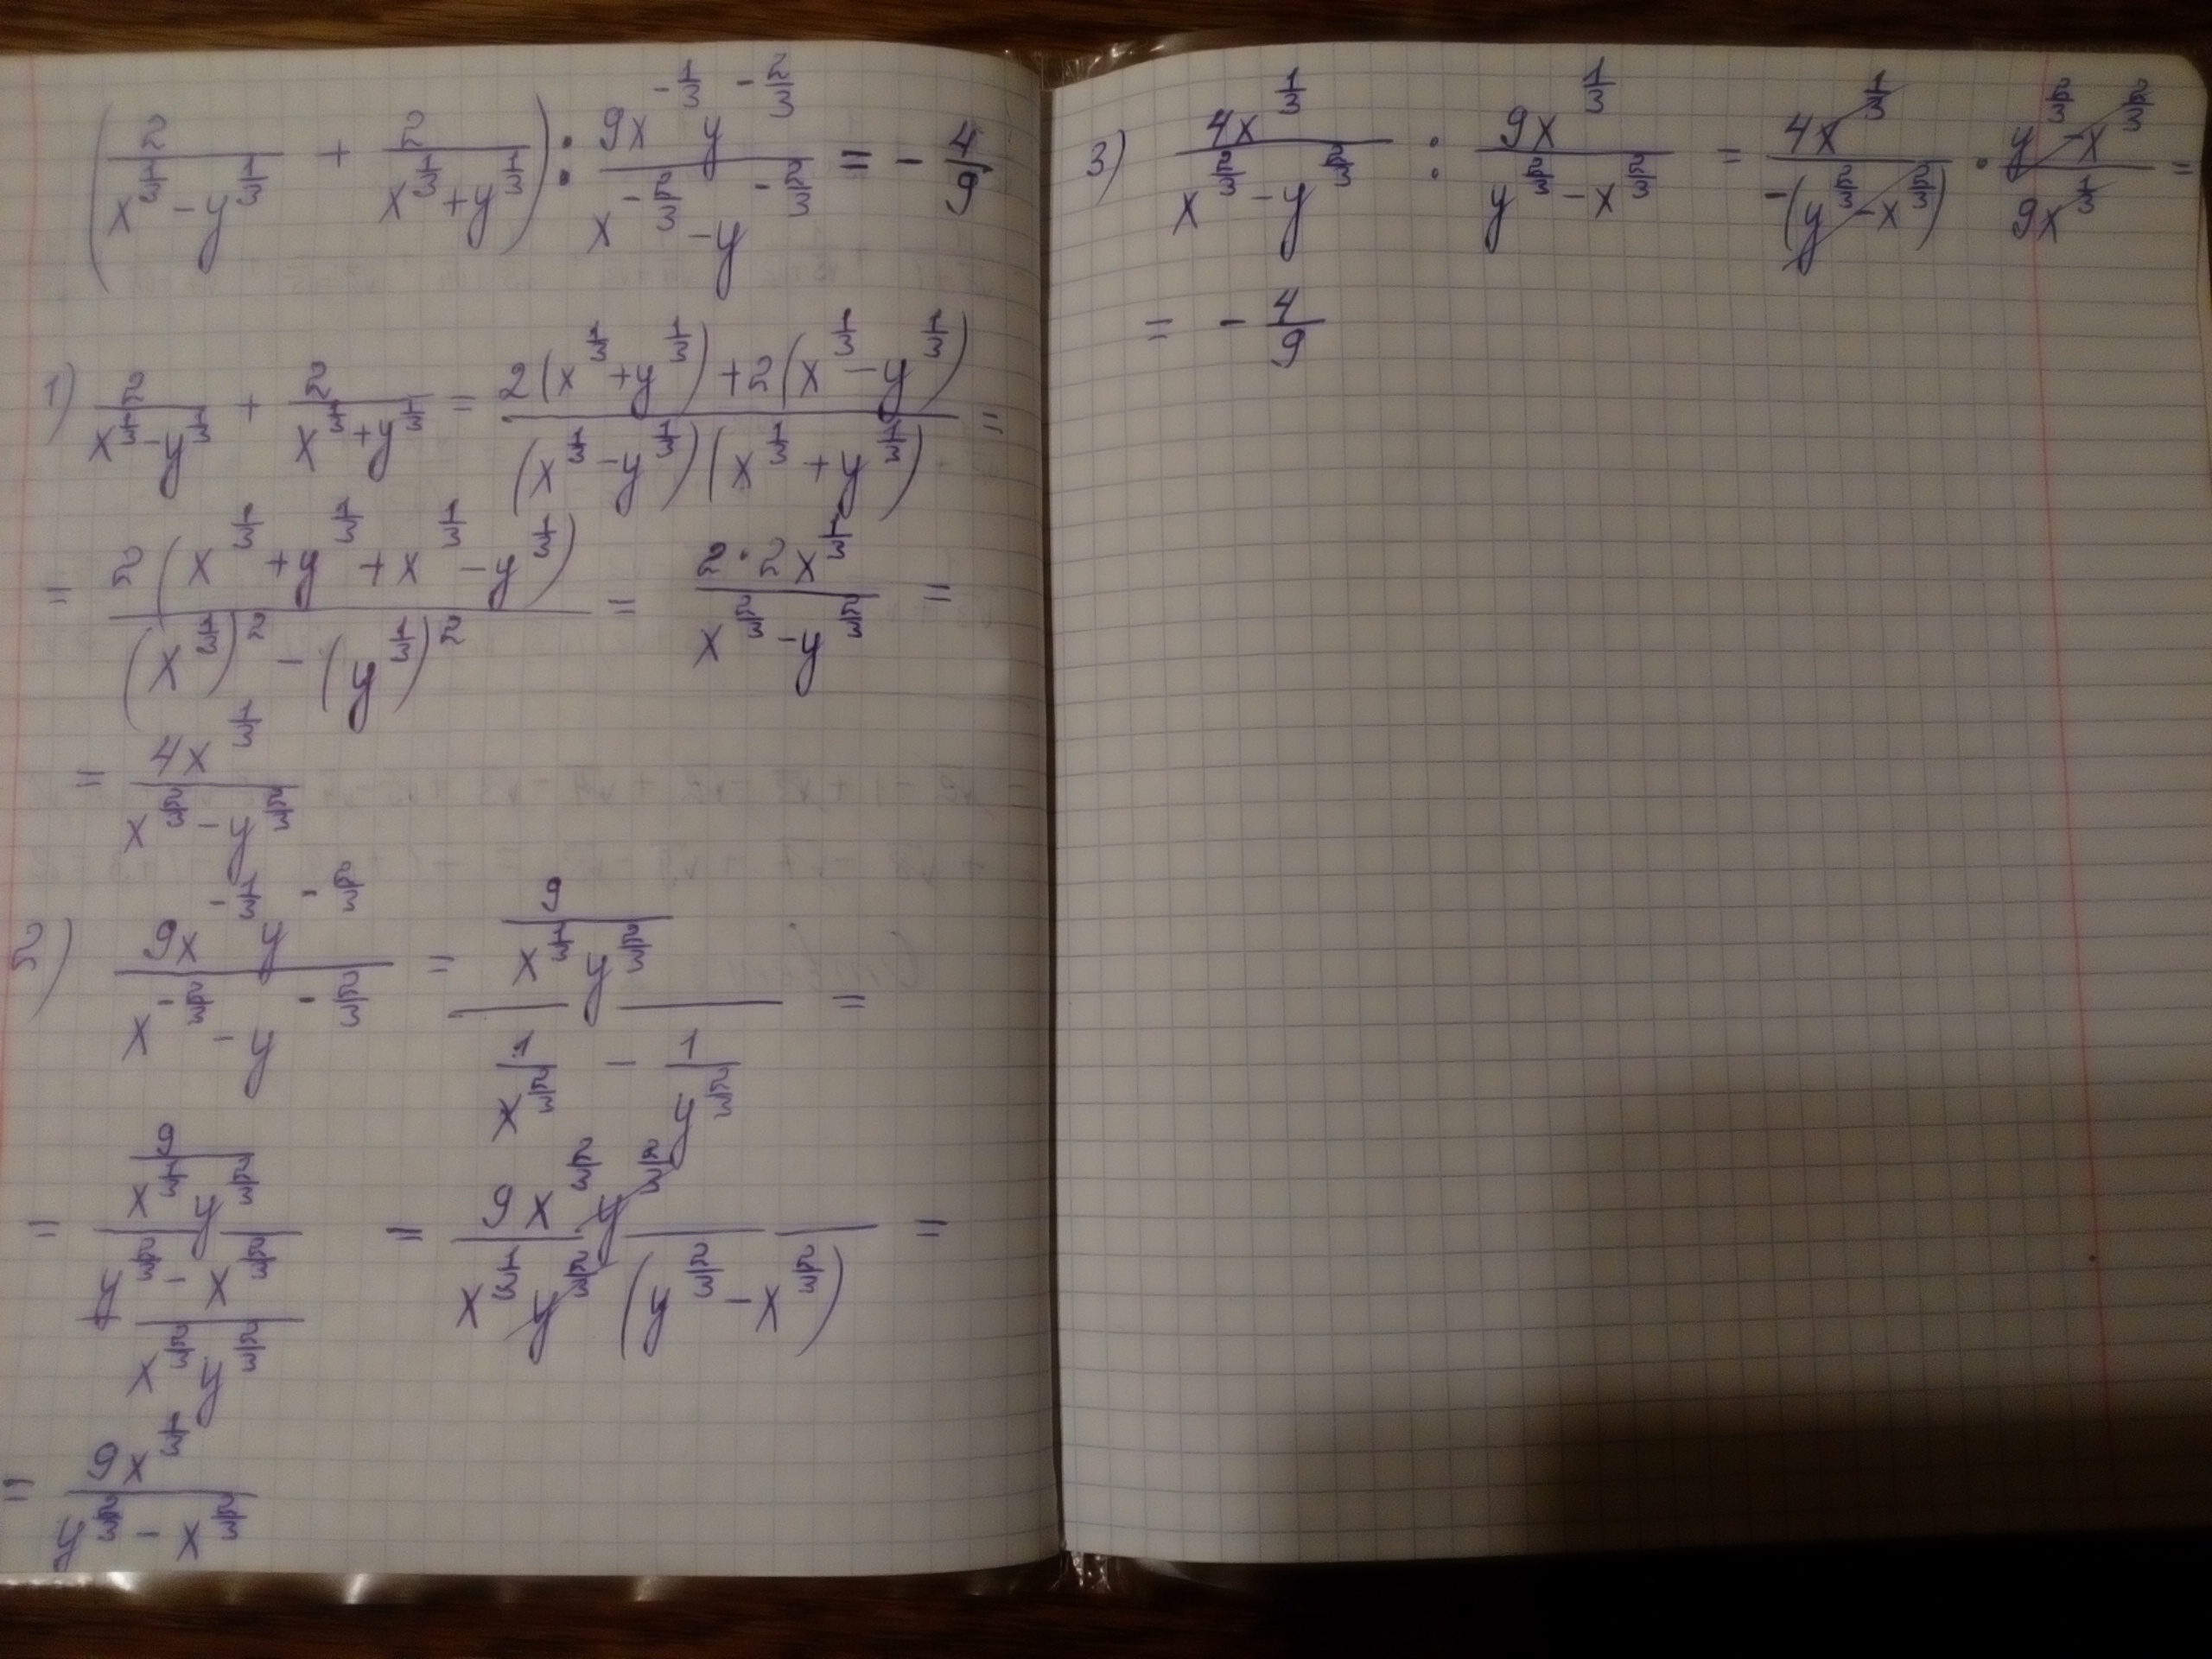 (2/(x^(1/3) - y^(1/3)) + 2/(x^(1/3) + y^(1/3))) : (9x^(-1/3) y^(-2/3))/(x^(-2/3) - y^(-2/3)) = - 4/9
1) 2/(x^(1/3) - y^(1/3)) + 2/(x^(1/3) + y^(1/3)) = (2(x^(1/3) + y^(1/3)) + 2(x^(1/3) - y^(1/3)))/((x^(1/3) - y^(1/3))(x^(1/3) + y^(1/3))) =
= (2(x^(1/3) + y^(1/3) + x^(1/3) - y^(1/3)))/((x^(1/3))^2 - (y^(1/3))^2) = (2 · 2x^(1/3))/(x^(2/3) - y^(2/3)) =
= (4x^(1/3))/(x^(2/3) - y^(2/3))
2) (9x^(-1/3) y^(-2/3))/(x^(-2/3) - y^(-2/3)) = (9/(x^(1/3) y^(2/3)))/(1/x^(2/3) - 1/y^(2/3)) =
= (9/(x^(1/3) y^(2/3)))/((y^(2/3) - x^(2/3))/(x^(2/3) y^(2/3))) = (9x^(2/3) y^(2/3))/(x^(1/3) y^(2/3) (y^(2/3) - x^(2/3))) =
= (9x^(1/3))/(y^(2/3) - x^(2/3))
3) (4x^(1/3))/(x^(2/3) - y^(2/3)) : (9x^(1/3))/(y^(2/3) - x^(2/3)) = (4x^(1/3))/(-(y^(2/3) - x^(2/3))) · (y^(2/3) - x^(2/3))/(9x^(1/3)) =
= - 4/9